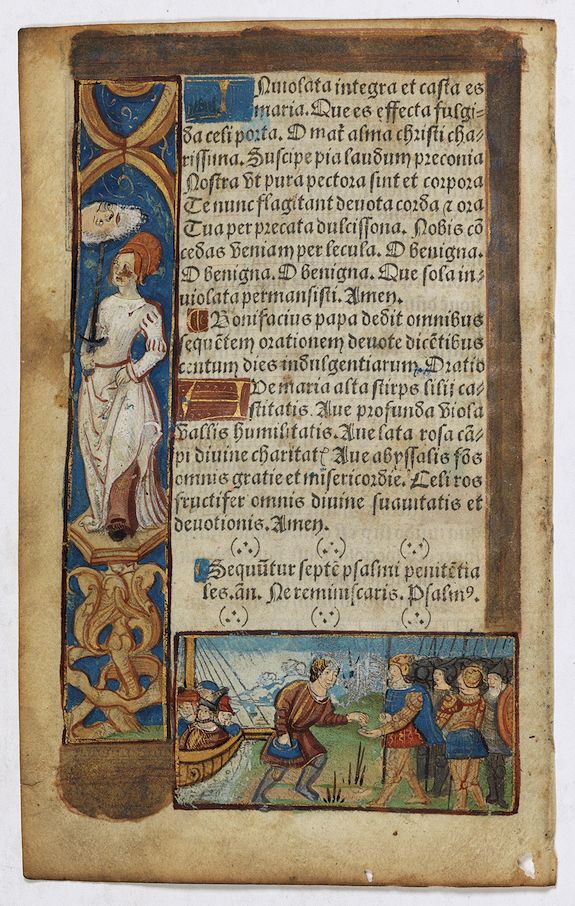 Inuiolata integra et casta es
maria. Que es effecta fulgi⸗
da celi porta. O mat̃ alma christi cha⸗
rissima. Suscipe pia laudum preconia
Nostra vt pura pectora sint et corpora
Te nunc flagitant deuota corda ⁊ ora
Tua per precata dulcissona. Nobis cõ
cedas veniam per secula. O benigna.
O benigna. O benigna. Que sola in⸗
uiolata permansisti. Amen.
Bonifacius papa dedit omnibus
sequẽtem orationem deuote dicẽtibus
centum dies indulgentiarum. Oratio
Aue maria alta stirps lilij ca⸗
stitatis. Aue profunda viola
vallis humilitatis. Aue lata rosa cã⸗
pi diuine charitatꝭ Aue abyssalis fõs
omnis gratie et misericordie. Celi ros
fructifer omnis diuine suauitatis et
deuotionis. Amen.
Sequũtur septẽ psalmi penitẽtia
les. añ. Ne reminiscaris. Psalmꝰ.